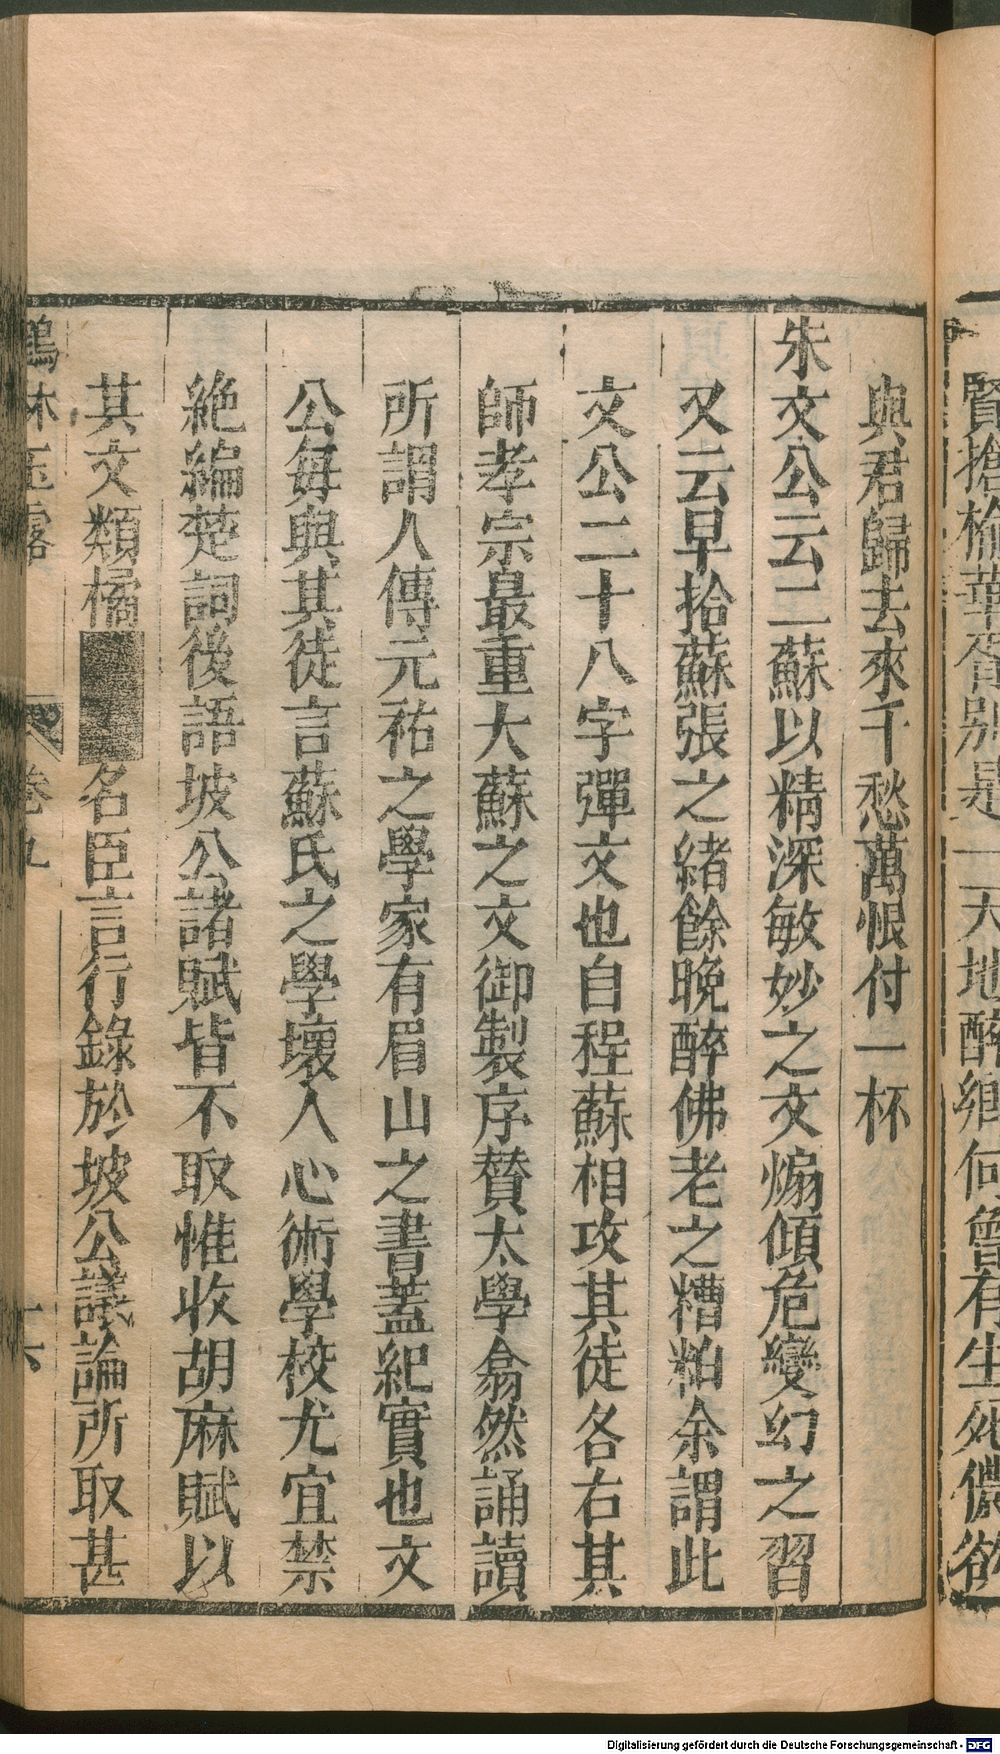 賢搶楡華胥別是一天地醉鄉何曾有生死儂欲
與君歸去來千愁萬恨付一杯
朱文公云二蘇以精深敏妙之文煽傾危變幻之習
又云早拾蘇張之緒餘晩醉佛老之糟粕余謂此
文公二十八字彈文也自程蘇相攻其徒各右其
師孝宗最重大蘇之文御製序贊太學翕然誦讀
所謂人傳元祐之學家有眉山之書蓋紀實也文
公每與其徒言蘇氏之學壞人心術學校尤宜禁
絶編楚詞後語坡公諸賦皆不取惟收胡麻賦以
其文類橘名臣言行錄於坡公議論所取甚
鶴林玉露 卷九 十六
Digitalisierung gefördert durch die Deutsche Forschungsgemeinschaft - DFG